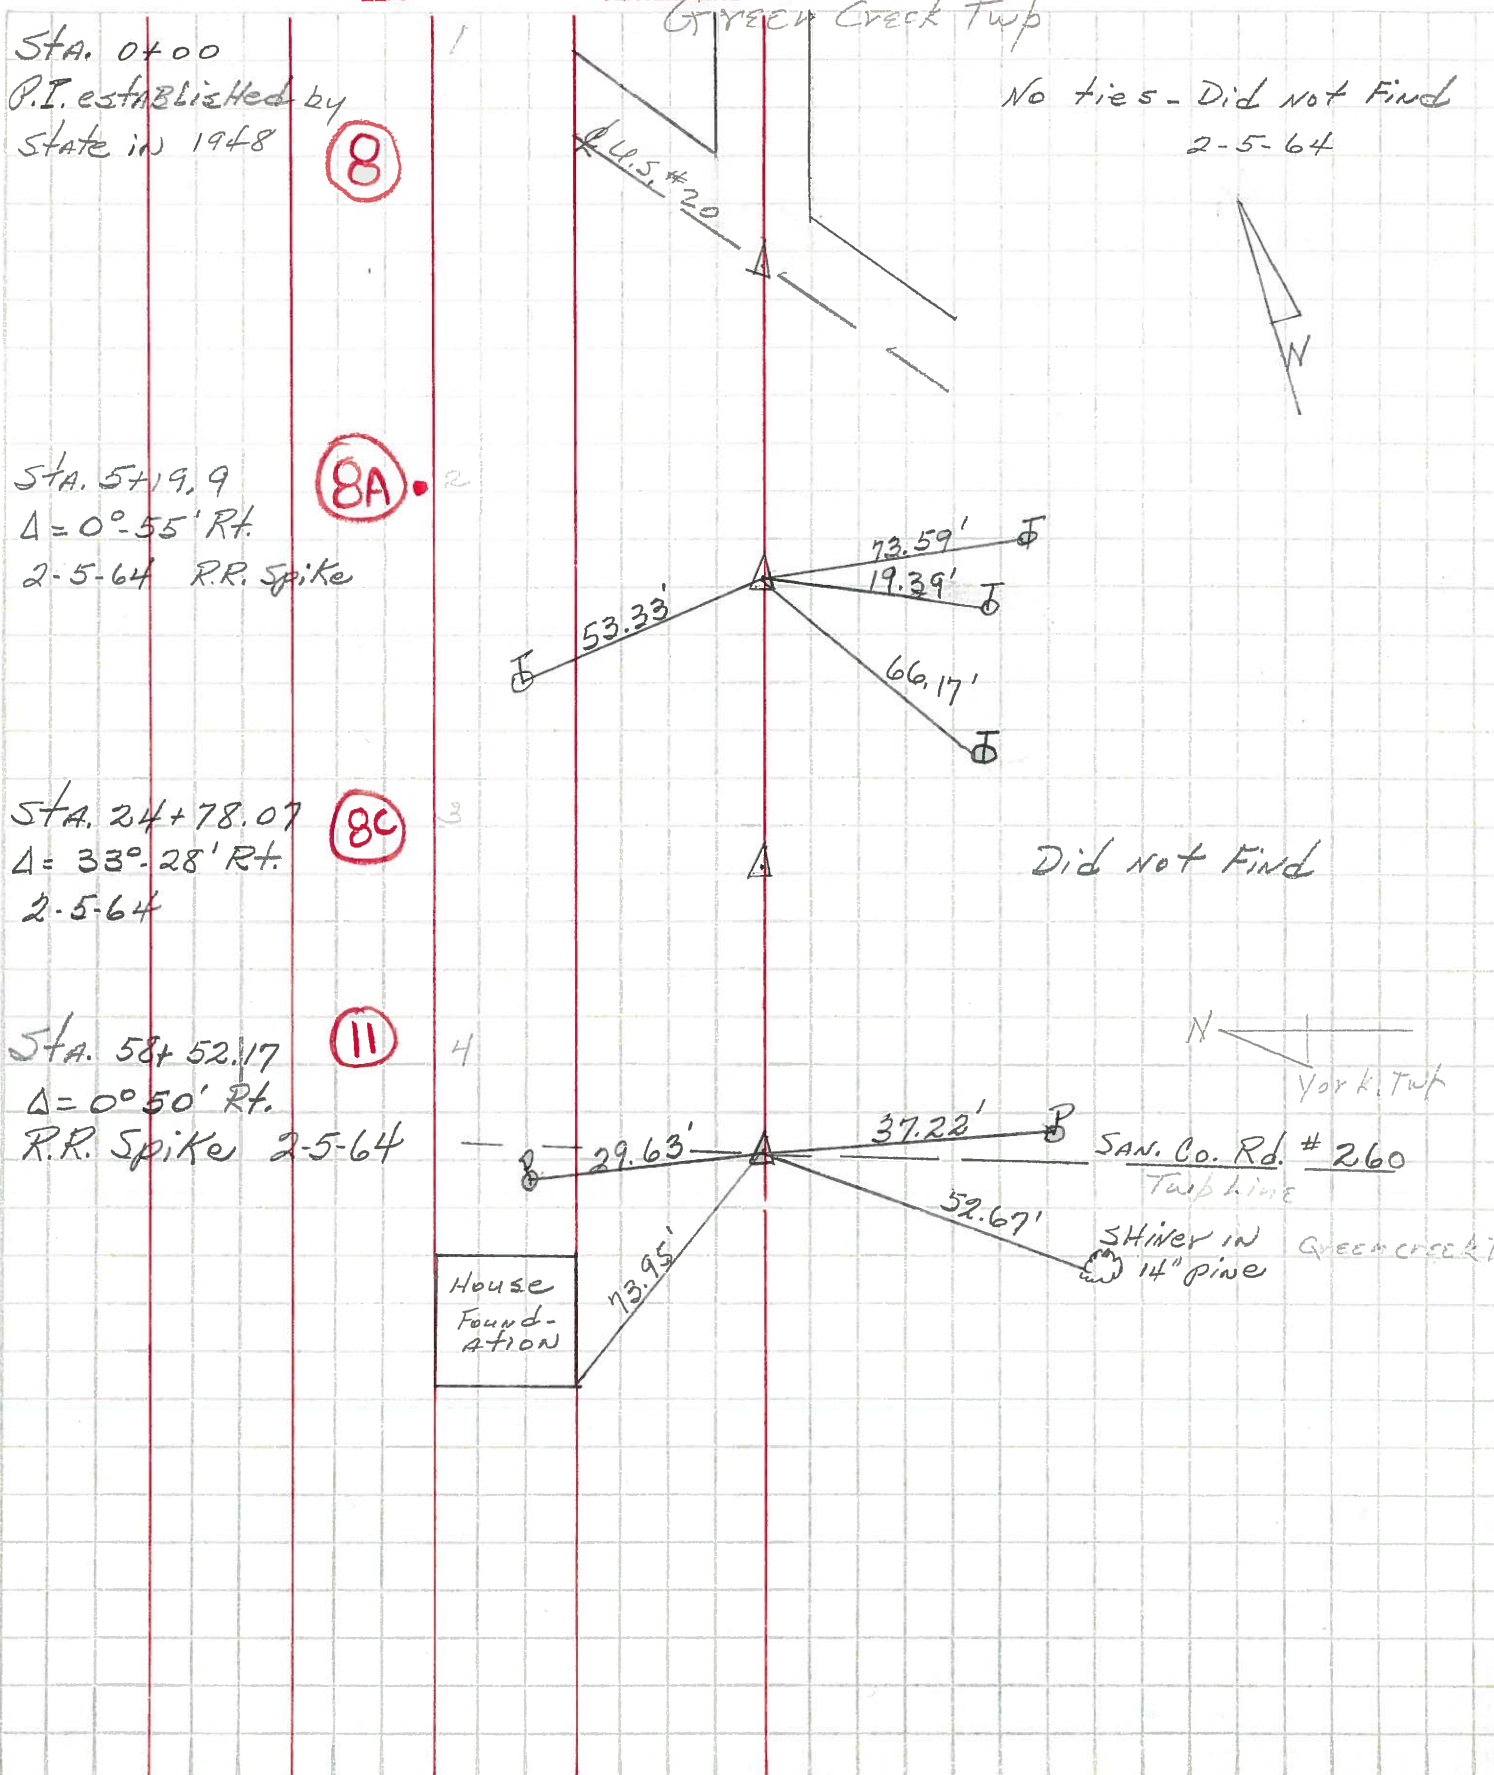 Green Creek Twp
Sta. 0+00
P.I. established by
State in 1948
8
1
℄ U.S. #20
No ties - Did Not Find
2-5-64
N
Sta. 5+19.9
Δ = 0°-55' Rt.
2-5-64 R.R. Spike
8A
2
73.59'
19.39'
53.33'
66.17'
T
T
T
T
Sta. 24+78.07
Δ = 33°-28' Rt.
2-5-64
8C
3
Did Not Find
Sta. 58+52.17
Δ = 0°50' Rt.
R.R. Spike 2-5-64
11
4
N
York. Twp
P
29.63'
37.22'
P
San. Co. Rd. #260
Twp Line
52.67'
Shiner in
14" pine
Greencreek T
73.95'
House
Found-
ation